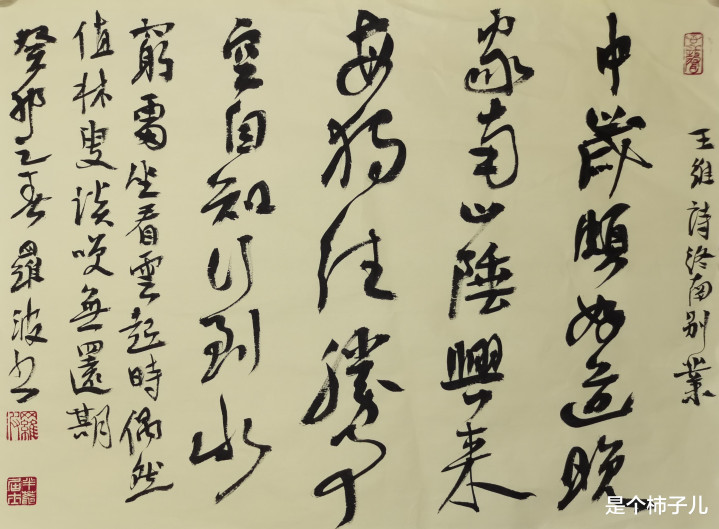 王維詩終南别業
中歲頗好道晚
家南山陲興來
每獨往勝事
空自知行到水
窮處坐看雲起時偶然
值林叟談咲無還期
癸卯之春羅波书
是个柿子儿